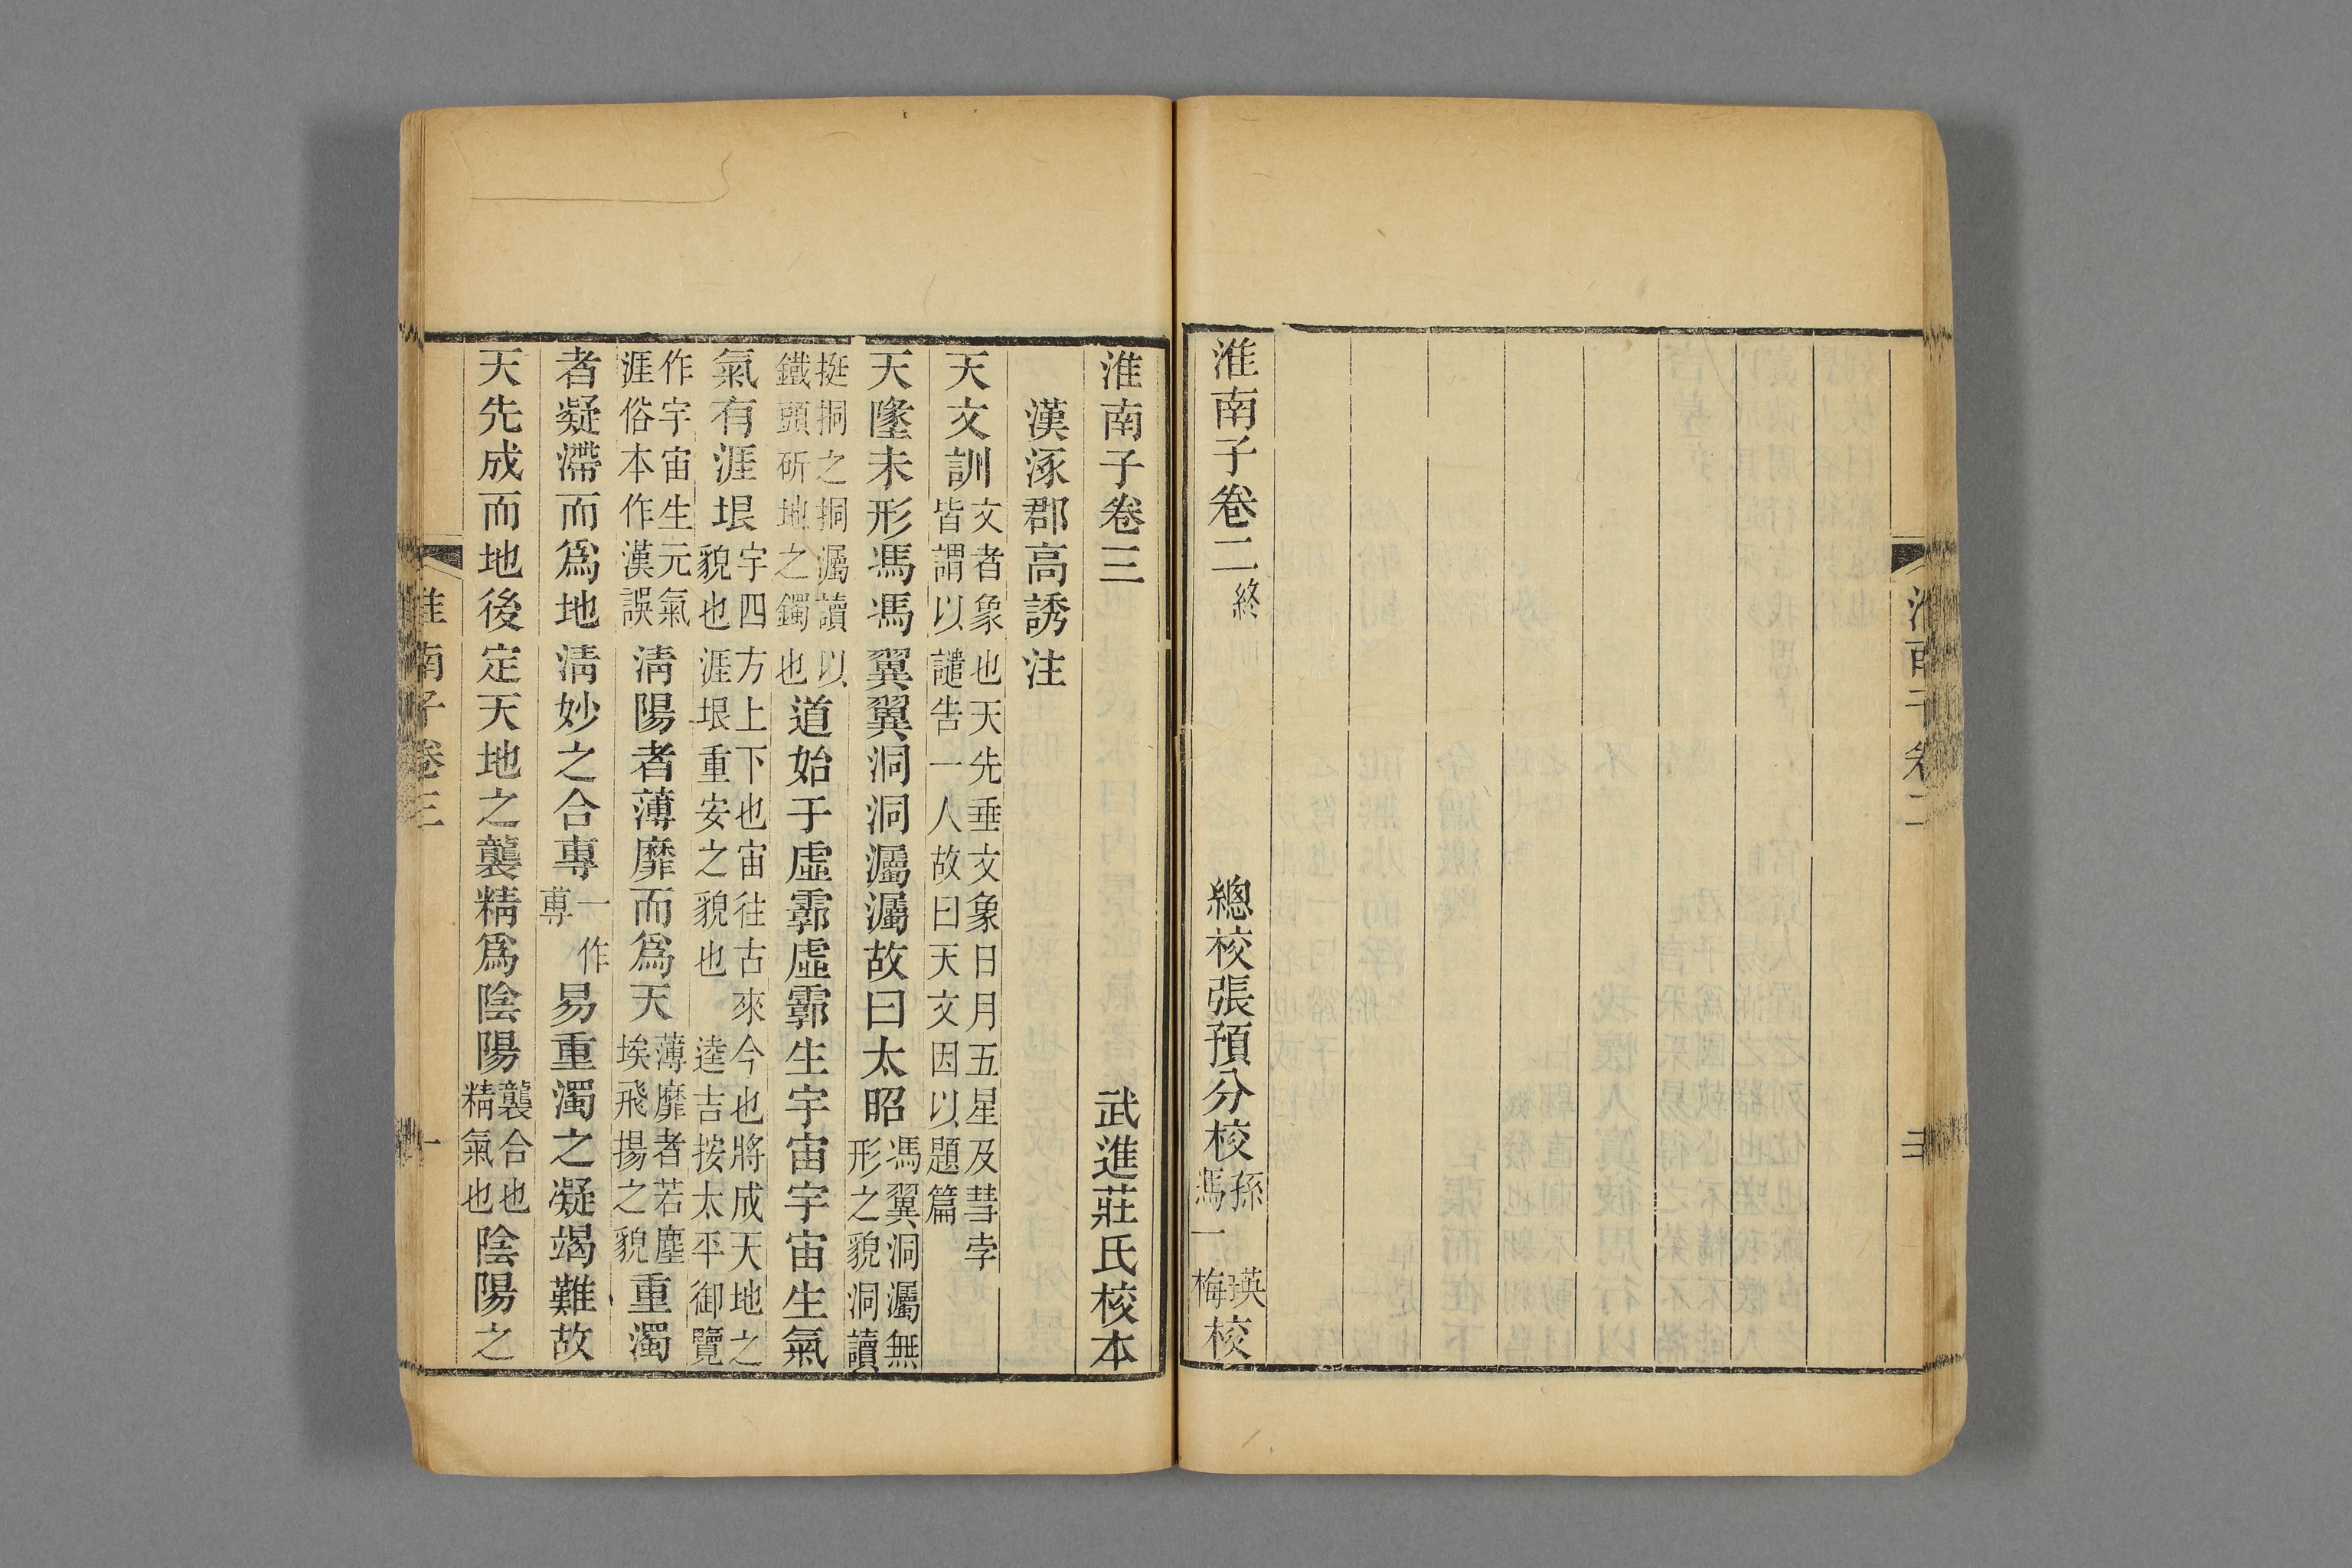 淮南子卷二
淮南子卷二終 總校張預分校孫瑛馮一梅校
淮南子卷三 武進莊氏校本
漢涿郡高誘注
天文訓文者象也天先垂文象日月五星及彗孛皆謂以譴告一人故曰天文因以題篇
天墬未形馮馮翼翼洞洞灟灟故曰太昭馮翼洞灟無形之貌洞讀
挺挏之挏灟讀以鐵頭斫地之鐲也道始于虛霩虛霩生宇宙宇宙生氣
氣有涯垠宇四方上下也宙往古來今也將成天地之貌也涯垠重安之貌也逵吉按太平御覽
作宇宙生元氣涯俗本作漢誤清陽者薄靡而爲天薄靡者若塵埃飛揚之貌重濁
者凝滯而爲地清妙之合專一作蓴易重濁之凝竭難故
天先成而地後定天地之襲精爲陰陽襲合也精氣也陰陽之
淮南子卷三 一